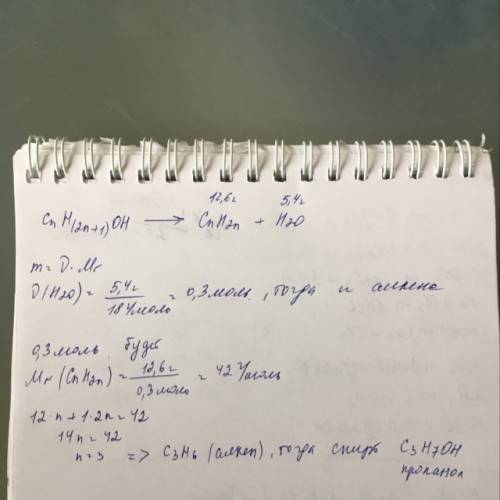 12,6г 5,4г
CnH(2n+1)OH → CnH2n + H2O
m = D · Mr
D(H2O) = 5,4г / 18 г/моль = 0,3моль, тогда и алкена
0,3 моль будет
Mr (CnH2n) = 12,6г / 0,3моль = 42 г/моль
12·n + 1·2n = 42
14n = 42
n = 3 => C3H6 (алкен), тогда спирт C3H7OH
пропанол